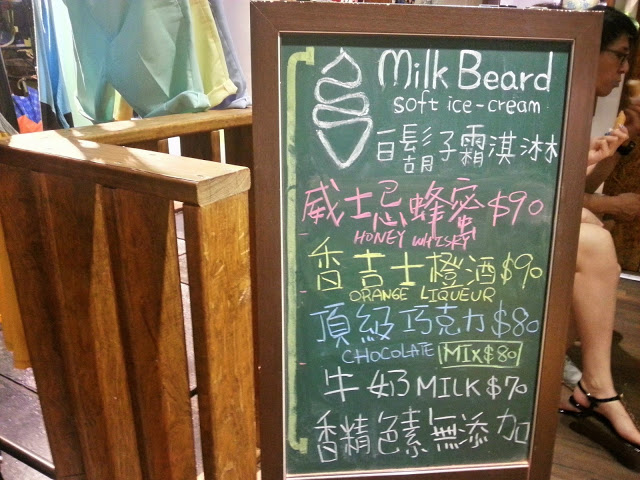 Milk Beard
soft ice-cream
白鬍子霜淇淋
威士忌蜂蜜$90
HONEY WHISKY
香吉士橙酒$90
ORANGE LIQUEUR
頂級巧克力$80
CHOCOLATE MIX$80
牛奶MILK$70
香精色素無添加